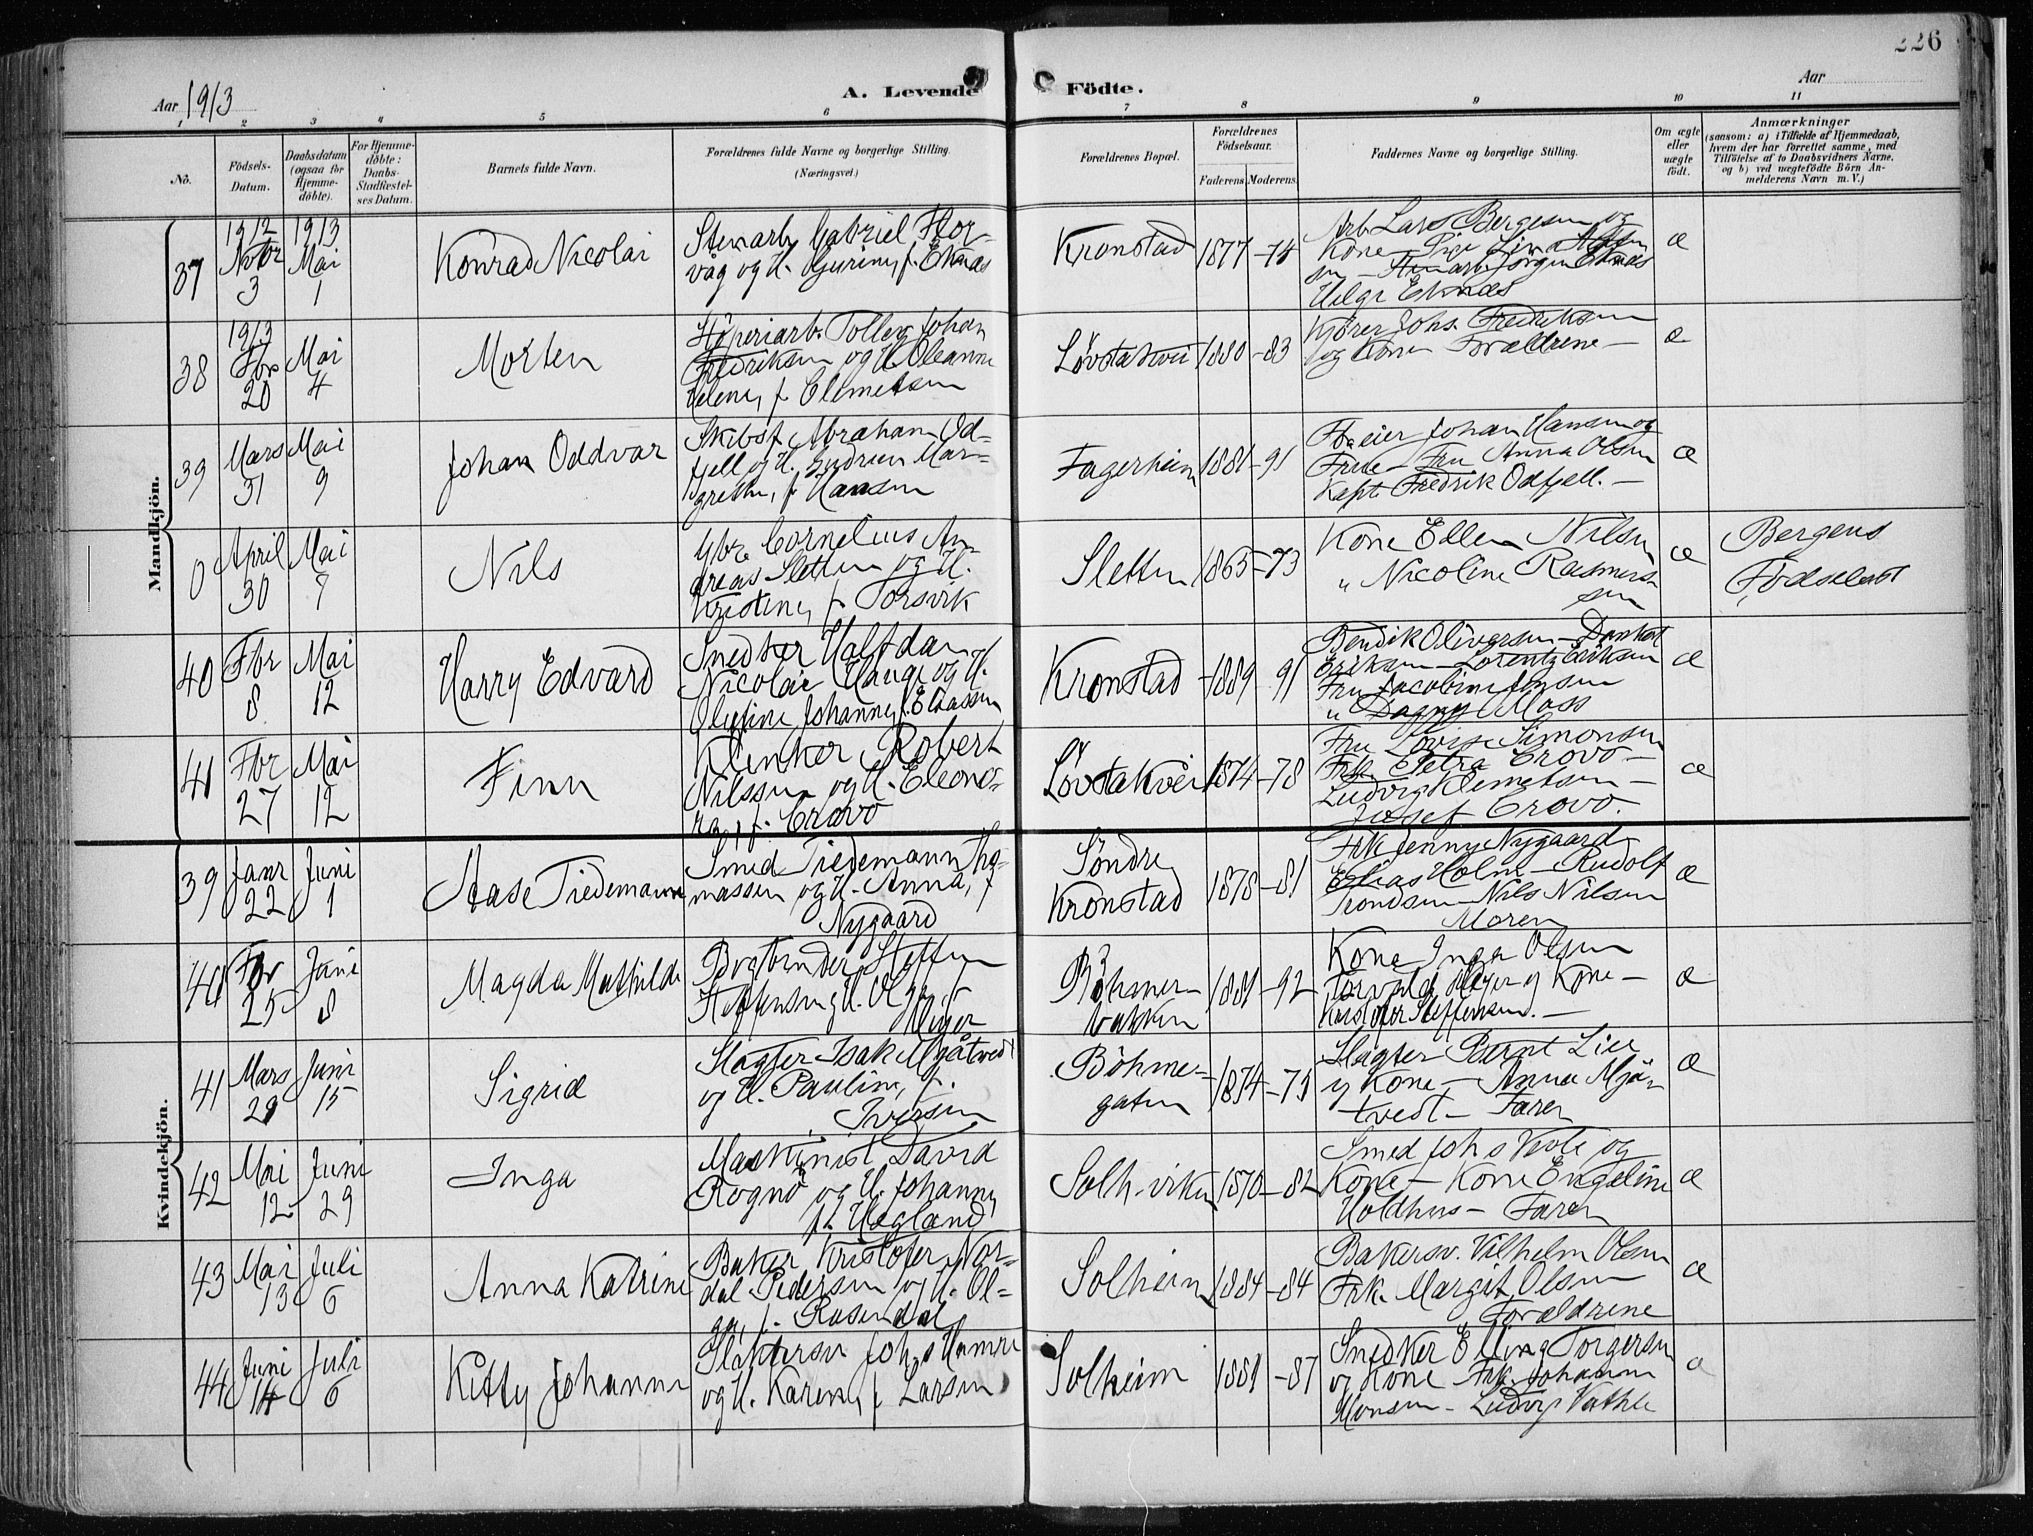 226
Aar 1913
A. Levende Födte.
Aar
1 2 3 4 5 6 7 8 9 10 11
No.
Födsels-Datum.
Daabsdatum (ogsaa for Hjemme-döbte).
For Hjemme-döbte: Daabs-Stadfæstel-ses Datum.
Barnets fulde Navn.
Forældrenes fulde Navne og borgerlige Stilling. (Næringsvei.)
Forældrenes Bopæl.
Forældrenes Födselsaar.
Faderens. Moderens.
Faddernes Navne og borgerlige Stilling.
Om ægte eller uægte födt.
Anmærkninger
(saasom: a) i Tilfælde af Hjemmedaab, hvem der har forrettet samme, med Tilföielse af to Daabsvidners Navne, og b) ved uægtefödte Börn An-melderens Navn m. V.)
Mandkjön.
37
1912 Novbr 3
1913 Mai 1
Konrad Nicolai
Stenarb. Gabriel Hor-
våg og H. Gurine, f. Eknæs
Kronstad
1877
Arb. Lars Bergesen og
Kone
Stenarb. Jörgen Eknæs
Helge Eknæs
æ
38
1913 Fbr 20
Mai 4
Morten
Johan
Fredriksen og H. Oleanne
Helene, f. Clemetsen
Lövstakvei
1880 - 83
Kjörer Johs. Fredriksen
og Kone Forældrene
æ
39
Mars 31
Mai 9
Johan Oddvar
Skibsf. Abraham Od-
fjell og H. Gudrun Mar-
grethe, f. Hansen
Fagerheim
1881 - 91
Johan Hansen og
Frue - Fru Anna Olsen
Kapt. Fredrik Odfjell.
æ
0
April 30
Mai 7
Nils
Gbr. Cornelius An-
dreas Sletten og H.
Kristine, f. Torsvik
Sletten
1865 - 73
Kone Ellen Nilsen
" Nicoline Rasmus-
sen
æ
Bergens
Födselsst
40
Fbr 8
Mai 12
Harry Edvard
Snedker Halfdan
Nicolai Hauge og H.
Olufine Johanne, f. Eliassen
Kronstad
1889 91
Bendik Oliversen - Dankert
Eriksen - Lorentz Eriksen
Fru Jacobine Jensen
" Dagny Moss
æ
41
Fbr 27
Mai 12
Finn
Klinker Robert
Nilssen og H. Eleono-
ra, f. Crovo
Lövstakvei
1874 - 78
Fru Lovise Simonsen
Frk. Petra Crovo -
Ludvig Klemetsen -
Josef Crovo.
æ
Kvindekjön.
39
Janr 22
Juni 1
Aase Tiedemann
Smed Tiedemann Tho-
massen og H. Anna, f
Nygaard
Söndre
Kronstad
1878 - 81
Frk Jenny Nygaard
Elias Holm - Rudolf
Trondsen - Nils Nilsen
Moren
æ
40
Fbr 25
Juni 8
Magda Mathilde
Bogbinder Steffen
Steffensen og H. Olga, f.
Meyer
Böhmer-
bakken
1889 - 92
Kone Inga Olsen
Torvald Meyer og Kone -
Kristofer Steffensen.
æ
41
Mars 29
Juni 15
Sigrid
Slagter Isak Mjåtvedt
og H. Pauline, f.
Iversen
Böhme-
gaten
1874 - 75
Slagter Bernt Lie
og Kone - Anna Mjå-
tvedt - Faren
æ
42
Mai 12
Juni 29
Inga
Maskinist David
Rognö og H. Johanne,
f. Hægland
Solh.viken
1870 - 82
Smed Johs Kvale og
Kone - Kone Engeline
Holdhus - Faren
æ
43
Mai 13
Juli 6
Anna Katrine
Baker Kristofer Nor-
dal Pedersen og H. Ol-
ga, f. Rosendal
Solheim
1884 - 84
Bakersv. Vilhelm Olsen
Frk. Margit Olsen
Forældrene
æ
44
Juni 14
Juli 6
Kitty Johanne
Slaktersv. Johs Hamre
og H. Karen, f. Larsen
Solheim
1889 - 87
Snedker Elling Torgersen
og Kone Frk. Johanne
Monsen - Ludvig Vathle
æ